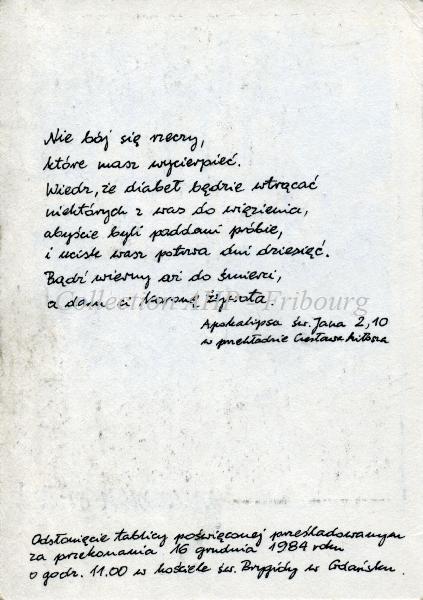 Nie bój się rzeczy,
które masz wycierpieć.
Wiedz, że diabeł będzie wtrącać
niektórych z was do więzienia,
abyście byli poddani próbie,
i ucisk wasz potrwa dni dziesięć.
Bądź wierny aż do śmierci,
a dam ci koronę żywota.
Collection AHP - Fribourg
Apokalipsa św. Jana 2,10
w przekładzie Czesława Miłosza
Odsłonięcie tablicy poświęconej prześladowanym
za przekonania 16 grudnia 1984 roku
o godz. 11.00 w kościele św. Brygidy w Gdańsku.